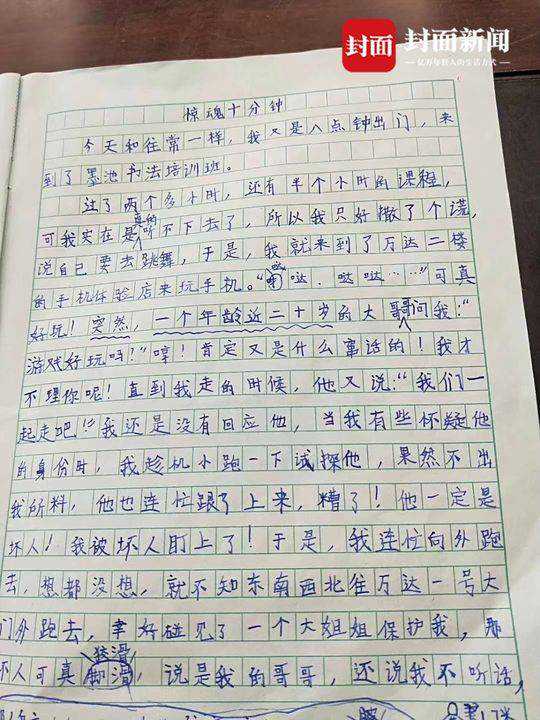 封面 封面新闻
亿万年轻人的生活方式
惊魂十分钟
今天和往常一样，我又是八点钟出门，来
到了墨池书法培训班。
过了两个多小时，还有半个小时的课程，
可我实在是真的听不下去了，所以我只好撒了个谎，
说自己要去跳舞，于是，我就来到了万达二楼
的手机体验店来玩手机。“哒哒，哒哒……”可真
好玩！突然，一个年龄近二十岁的大哥哥问我：“
游戏好玩吗？”哼！肯定又是什么搭话的！我才
不理你呢！直到我走的时候，他又说：“我们一
起走吧！”我还是没有回应他，当我有些怀疑他
的身份时，我趁机小跑一下试探他，果然不出
我所料，他也连忙跟了上来，糟了！他一定是
坏人！我被坏人盯上了！于是，我连忙向外跑
去，想都没想，就不知东南西北往万达一号大
门外跑去，幸好碰见了一个大姐姐保护我，那
坏人可真狡滑，说是我的哥哥，还说我不听话，